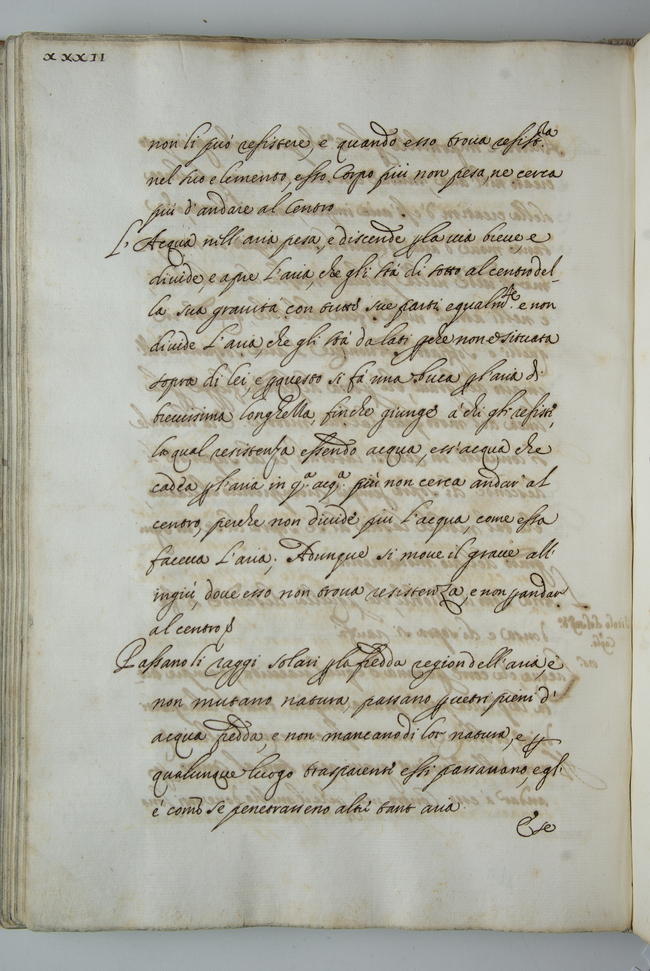 XXXII
non li può resistere, e quando esso trova resist.za
nel suo elemento, esso Corpo più non pesa, ne cerca
più d'andare al Centro
L'Acqua nell'aria pesa, e discende p la via breve, e
divide, e apre L'aria, che gli stà di sotto al centro del-
la sua gravità con tutte sue parti equalm.te e non
divide L'aria, che gli stà da lati pche non è situata
sopra di lei, e pquesto si fà una buca pl'aria di
brevissima longhella, finche giunge à chi gli resisti,
la qual resistenza essendo acqua, ess'acqua che
cadea pl'aria in q.a acq.a più non cerca andar' al
centro, perche non divide più L'acqua, come essa
faceva L'aria. Adunque si move il grave all'
ingiù, dove esso non trova resistenza, e non pandar
al centro
Passano li raggi solari pla fredda region dell'aria, e
non mutano natura, passano pvetri pieni d'
acqua fredda, e non mancano di lor natura, e p
qualunque luogo trasparente essi passavano, egl'
è come se penetrasseno altri tant'aria.
E se